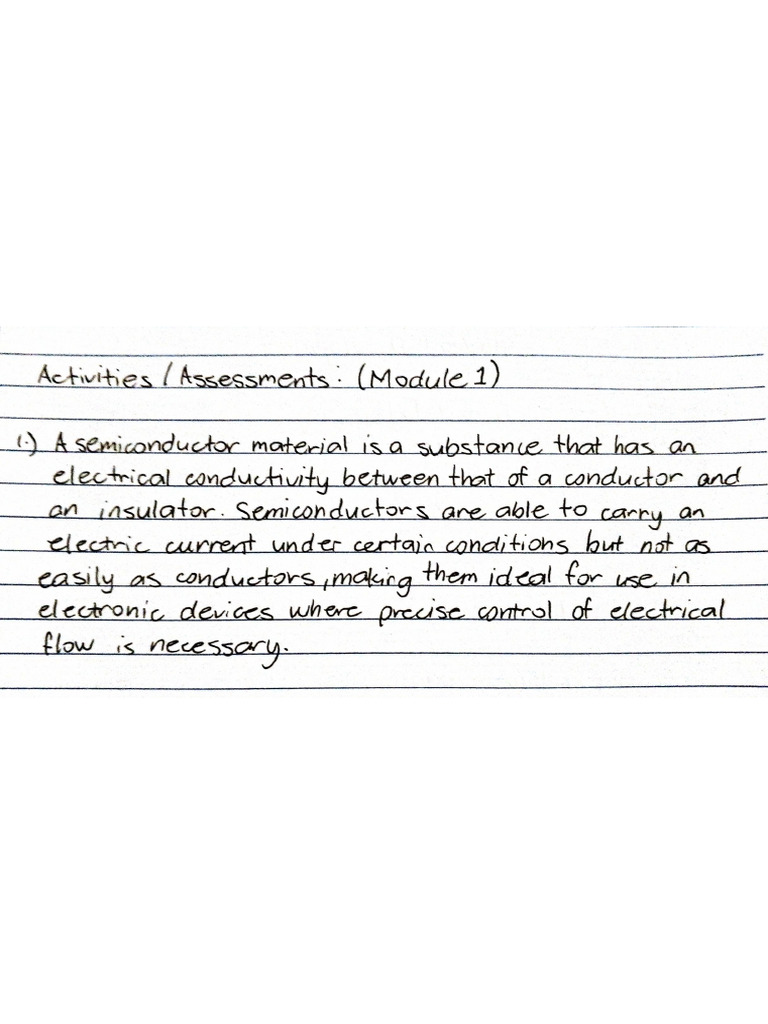 Activities / Assessments: (Module 1)
1.) A semiconductor material is a substance that has an
electrical conductivity between that of a conductor and
an insulator. Semiconductors are able to carry an
electric current under certain conditions but not as
easily as conductors, making them ideal for use in
electronic devices where precise control of electrical
flow is necessary.